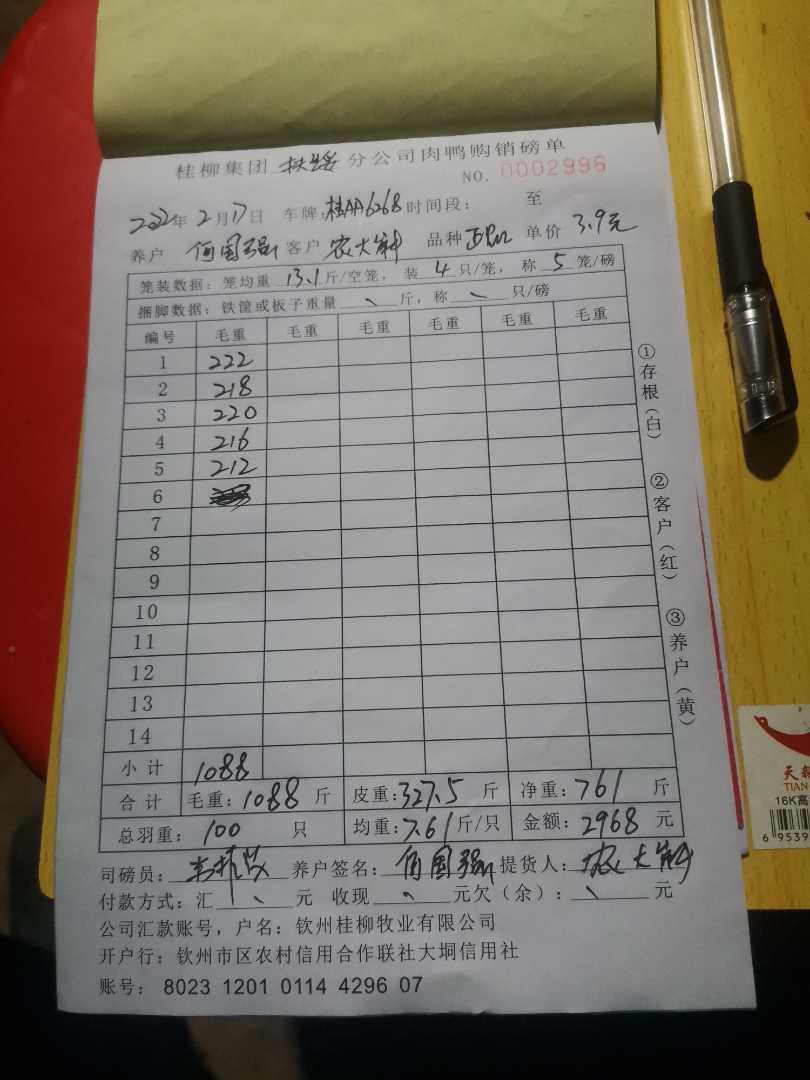 桂柳集团 扶绥 分公司肉鸭购销磅单
NO. 0002996
2022年 2月17日 车牌:桂AA6268 时间段: 至
养户 何国强 客户 农大科 品种 单价 3.9元
笼装数据: 笼均重 13.1 斤/空笼, 装 4 只/笼, 称 5 笼/磅
捆脚数据: 铁筐或板子重量 、 斤, 称 、 只/磅
编号 毛重 毛重 毛重 毛重 毛重 毛重
1 222
2 218
3 220
4 216
5 212
6
7
8
9
10
11
12
13
14
小计 1088
合计 毛重: 1088 斤 皮重: 327.5 斤 净重: 761 斤
总羽重: 100 只 均重: 7.61 斤/只 金额: 2968 元
司磅员: 养户签名: 何国强 提货人: 农大科
付款方式: 汇 、 元 收现 、 元欠(余): 、 元
公司汇款账号, 户名: 钦州桂柳牧业有限公司
开户行: 钦州市区农村信用合作联社大垌信用社
账号: 8023 1201 0114 4296 07
①存根(白)
②客户(红)
③养户(黄)
天
TIAN
16K高
6 9539